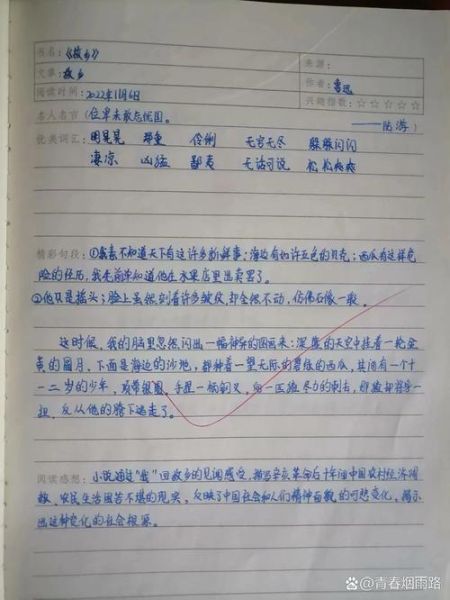 书名：《故乡》 来源：
文章：故乡 作者：鲁迅
阅读时间：2022年11月6日 兴趣指数：☆☆☆☆☆
名人名言（位卑未敢忘忧国。 ——陆游）
优美词汇：明晃晃 郑重 伶俐 无穷无尽 躲躲闪闪
凄凉 凶猛 鄙夷 无话可说 松松爽爽
精彩句段：①我素不知道天下有这许多新鲜事：海边有如许五色的贝壳；西瓜有这样危
险的经历，我先前单知道他在水果店里出卖罢了。
②他只是摇头；脸上虽然刻着许多皱纹，却全然不动，仿佛石像一般。
这时候，我的脑里忽然闪出一幅神异的图画来：深蓝的天空中挂着一轮金
黄的圆月，下面是海边的沙地，都种着一望无际的碧绿的西瓜，其间有一个十
一二岁的少年，项带银圈，手捏一柄钢叉，向一匹猹尽力的刺去，那猹却将身一
扭，反从他的胯下逃走了。
阅读感想：小说通过“我”回故乡的见闻感受，描写辛亥革命后十年间中国农村经济凋
敝、农民生活困苦不堪的现实。反映了中国社会和人们精神面貌的可悲变化，揭示
出这种变化的社会根源。
@青春烟雨路